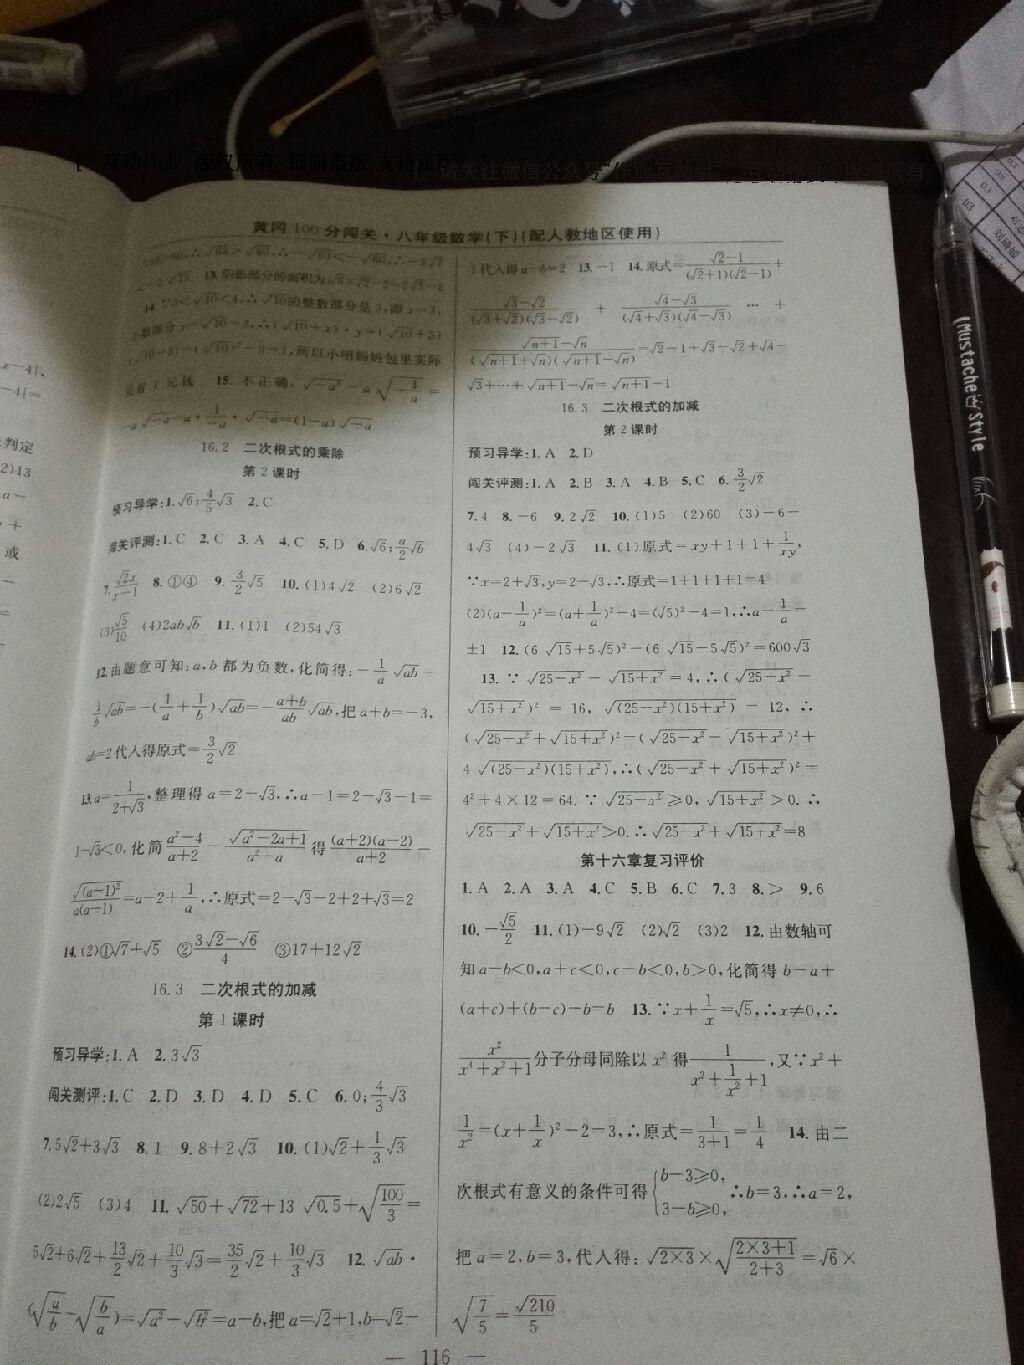 黄冈100分闯关·八年级数学(下)(配人教地区使用)
13.阴影部分的面积为
14.∵3<√10<4,∴√10的整数部分是3,即x=3,
数部分y=√10-3,∴(√10+x)·y=(√10+3)
(√10-3)=(√10)²-9=1,所以小明妈妈包里实际
15.不正确.
16.2 二次根式的乘除
第2课时
预习导学:1.√6;4/5√3 2.C
闯关评测:1.C 2.C 3.A 4.C 5.D 6.√6;a/2√b
7.√2x/x-1 8.①④ 9.3/2√5 10.(1)4√2 (2)6√2
(3)√5/10 (4)2ab√b 11.(1)1 (2)54√3
12.由题意可知:a,b都为负数,化简得:-1/a√ab-
1/b√ab=-(1/a+1/b)√ab=-a+b/ab√ab,把a+b=-3,
ab=2代入得原式=3/2√2
13.a=1/2+√3,整理得a=2-√3,∴a-1=2-√3-1=
1-√3<0,化简a²-4/a+2-√a²-2a+1/a²-a得(a+2)(a-2)/a+2-
√(a-1)²/a(a-1)=a-2+1/a,∴原式=2-√3-2+2+√3=2
14.(2)①√7+√5 ②3√2-√6/4 ③17+12√2
16.3 二次根式的加减
第1课时
预习导学:1.A 2.3√3
闯关测评:1.C 2.D 3.D 4.D 5.C 6.0;4/3√3
7.5√2+3√3 8.1 9.8+2√3 10.(1)√2+1/3√3
(2)2√5 (3)4 11.√50+√72+13√0.5+√100/3=
5√2+6√2+13/2√2+10/3√3=35/2√2+10/3√3 12.√ab·
(√a/b-√b/a)=√a²-√b²=a-b,把a=√2+1,b=√2-
1代入得a-b=2 13.-1 14.原式=√2-1/(√2+1)(√2-1)+
√3-√2/(√3+√2)(√3-√2)+√4-√3/(√4+√3)(√4-√3)…+
√n+1-√n/(√n+1+√n)(√n+1-√n)=√2-1+√3-√2+√4-
√3+…+√n+1-√n=√n+1-1
16.3 二次根式的加减
第2课时
预习导学:1.A 2.D
闯关评测:1.A 2.B 3.A 4.B 5.C 6.3/2√2
7.4 8.-6 9.2√2 10.(1)5 (2)60 (3)-6-
4√3 (4)-2√3 11.(1)原式=xy+1+1+1/xy,
∵x=2+√3,y=2-√3,∴原式=1+1+1+1=4
(2)(a-1/a)²=(a+1/a)²-4=(√5)²-4=1,∴a-1/a=
±1 12.(6√15+5√5)²-(6√15-5√5)²=600√3
13.∵√25-x²-√15+x²=4,∴(√25-x²-
√15+x²)²=16,√(25-x²)(15+x²)=12,∴
(√25-x²+√15+x²)²=(√25-x²-√15+x²)²+
4√(25-x²)(15+x²),∴(√25-x²+√15+x²)²=
4²+4×12=64.∵√25-x²≥0,√15+x²>0.∴
√25-x²+√15+x²>0.∴√25-x²+√15+x²=8
第十六章复习评价
1.A 2.A 3.A 4.C 5.B 6.C 7.3 8.> 9.6
10.-√5/2 11.(1)-9√2 (2)√2 (3)2 12.由数轴可
知a-b<0,a+c<0,c-b<0,b>0,化简得b-a+
(a+c)+(b-c)-b=b 13.∵x+1/x=√5,∴x≠0,∴
x²/x⁴+x²+1分子分母同除以x²得1/x²+1/x²+1,又∵x²+
1/x²=(x+1/x)²-2=3,∴原式=1/3+1=1/4 14.由二
次根式有意义的条件可得{b-3≥0,3-b≥0,∴b=3,∴a=2,
把a=2,b=3,代入得:√2×3×√2×3+1/2+3=√6×
√7/5=√210/5
— 116 —
Mustache Style